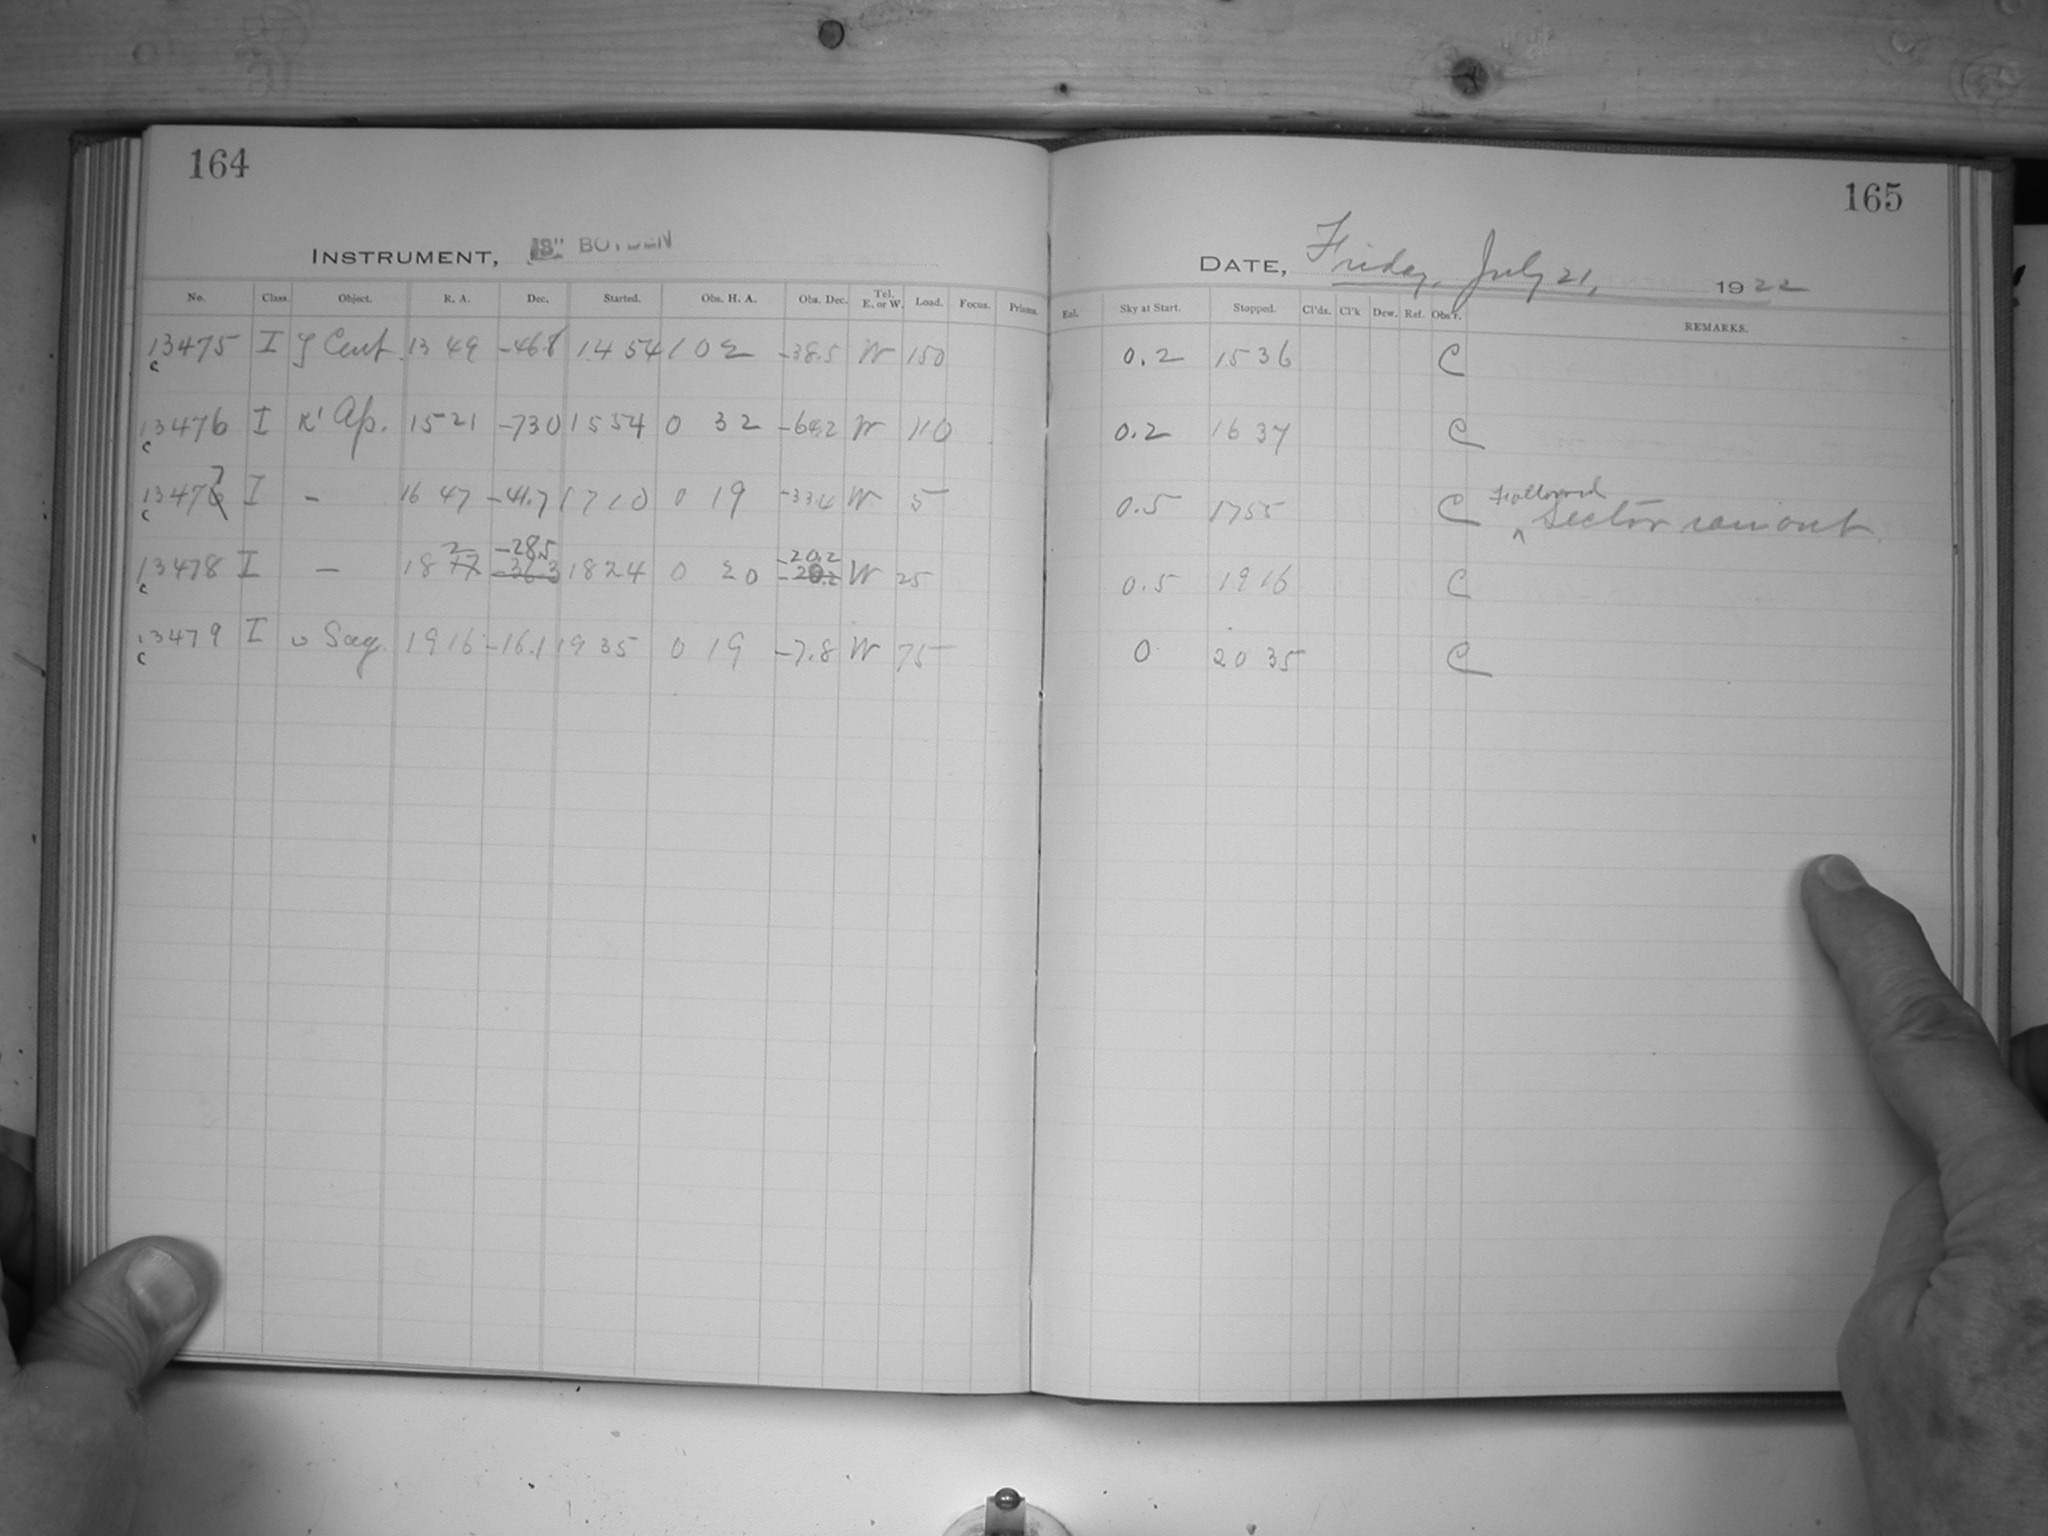 164
INSTRUMENT, 13" BOYDEN
No. Class. Object. R. A. Dec. Started. Obs. H. A. Obs. Dec. Tel. E. or W. Load. Focus. Prisms.
13475 I ζ Cent. 13 49 -46.8 14 54 1 02 -38.5 W 150
c
13476 I κ' Ap. 15 21 -73.0 15 54 0 32 -64.2 W 110
c
13477 I - 16 47 -41.7 17 10 0 19 -33.4 W 5
c
13478 I - 18 2 -28.5 -36.3 18 24 0 20 -20.2 W 25
c
13479 I υ Sag. 19 16 -16.1 19 35 0 19 -7.8 W 75
c
165
DATE, Friday, July 21, 1922
Exl. Sky at Start. Stopped. Cl'ds. Cl'k Dew. Ref. Obs'r. REMARKS.
0.2 15 36 C
0.2 16 37 C
0.5 17 55 C Followed Sector ran out.
0.5 19 16 C
0 20 35 C